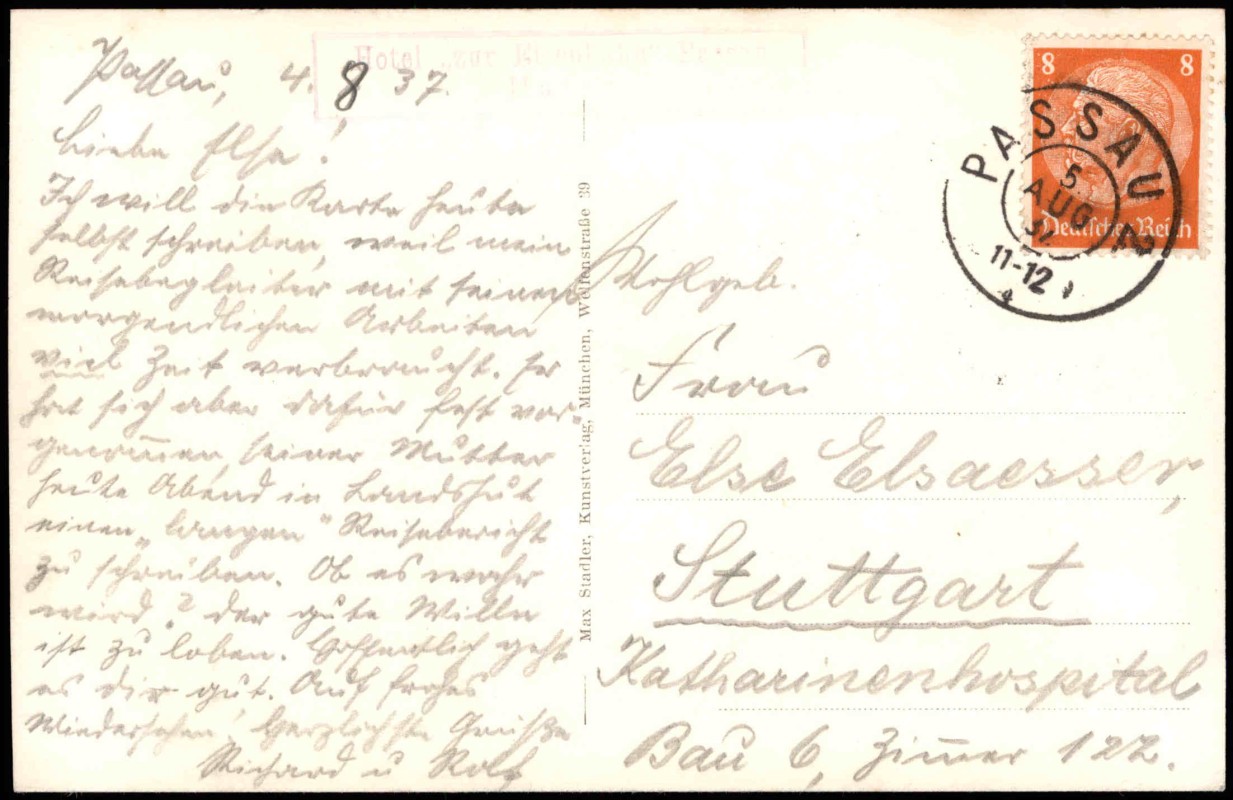 Hotel „zur Eisenbahn" Passau
Passau, 4. 8. 37.
Liebe Else!
Ich will die Karte heute
selbst schreiben, weil mein
Reisebegleiter mit seinen
morgendlichen Arbeiten
viel Zeit verbraucht. Er
hat sich aber dafür fest vor-
genommen, seiner Mutter
heute Abend in Landshut
einen „langen" Reisebericht
zu schreiben. Ob es wahr
wird? Der gute Wille
ist zu loben. Hoffentlich geht
es dir gut. Auf frohes
Wiedersehen! Herzlichste Grüße
Richard u Rolf
Max Stadler, Kunstverlag, München, Welfenstraße 39
8 8
Deutsches Reich
PASSAU 2
5.
AUG
37
11-12
Wohlgeb.
Frau
Else Elsaesser,
Stuttgart
Katharinenhospital
Bau 6, Zimmer 122.